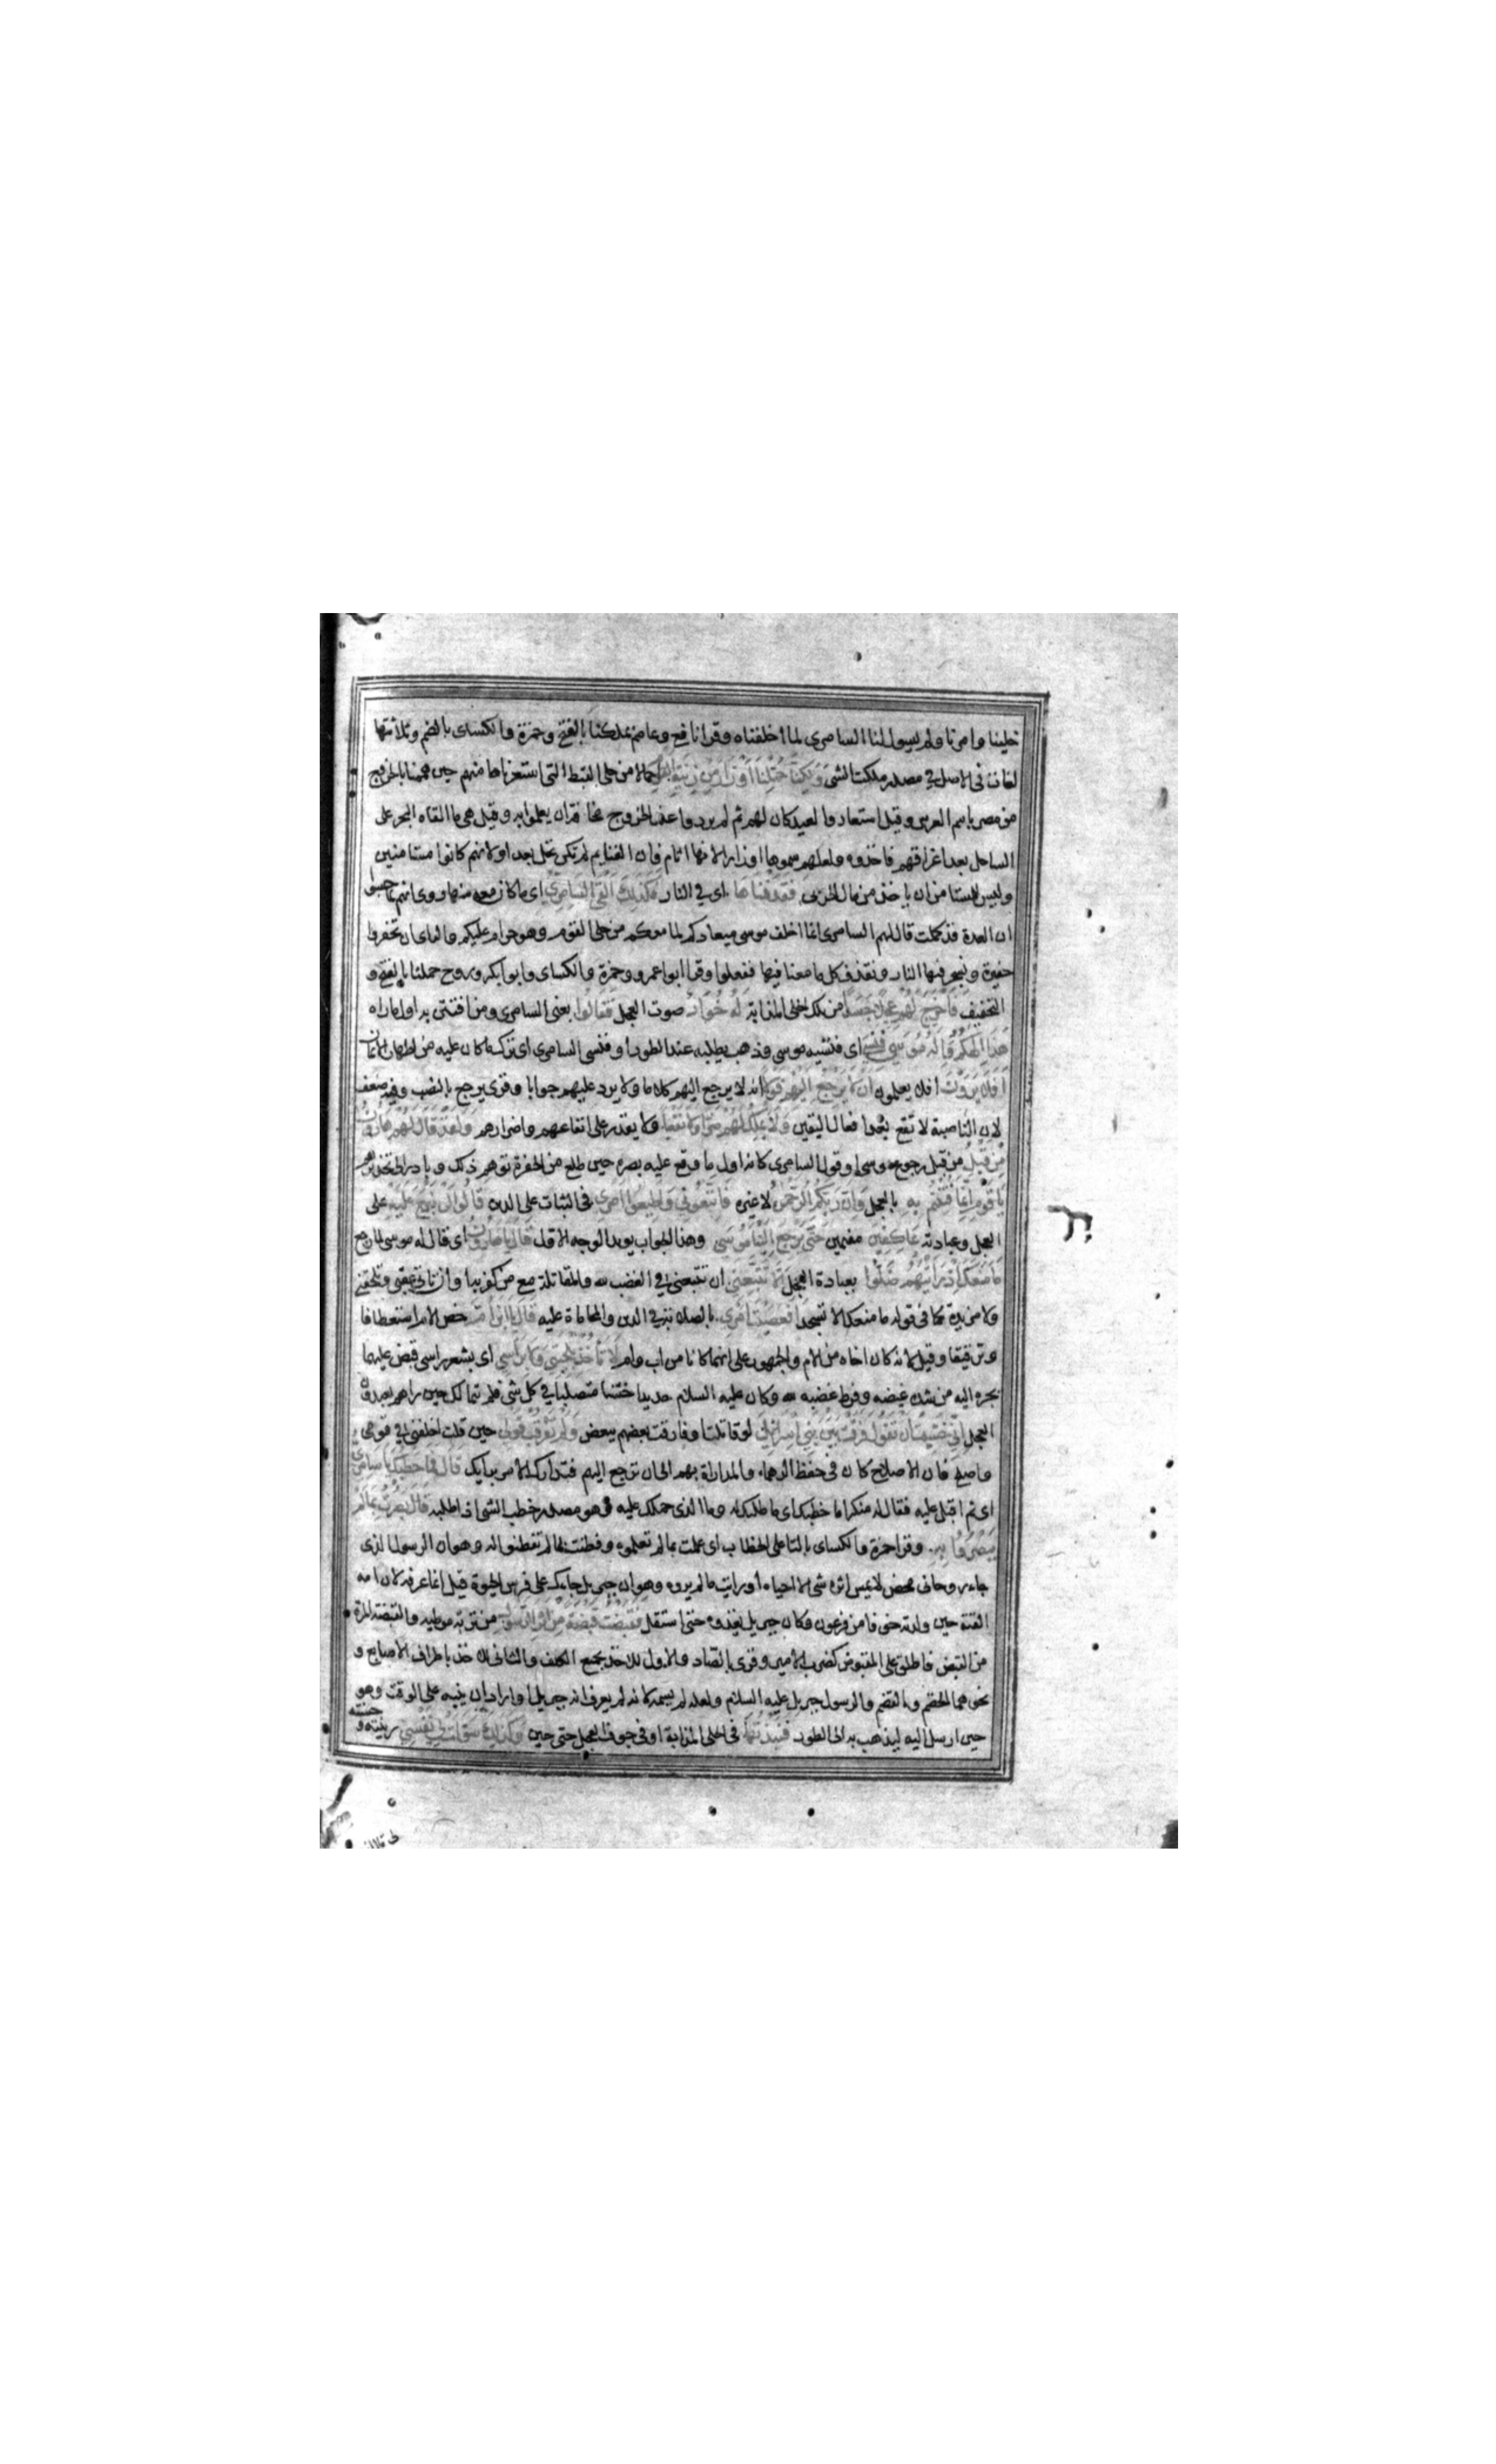 خلينا وامرنا ولم يسول لنا السامرى لما اخلفناه وقرا نافع وعاصم بملكنا بالفتح وحمزة والكساى بالضم وثلاثتها
لغات فى الاصل فى مصدر ملكت الشى وَلٰكِنَّا حُمِّلْنَا اَوْزَارًا مِنْ زِينَةِ القَوْمِ احمالا من حلى القبط التى استعرناها منهم حين هممنا بالخروج
من مصر باسم العرس وقيل استعاروا لعيد كان لهم ثم لم يردوا عند الخروج مخافة ان يعلموا به وقيل هى ما القاه البحر على
الساحل بعد اغراقهم فاخذوه ولعلهم سموها اوزارا لانها اثام فان الغنايم لم تكن تحل بعد او لانهم كانوا مستامنين
وليس للمستامن ان ياخذ من مال الحربى فَقَذَفْنَاهَا اى فى النار فَكَذٰلِكَ اَلْقَى السَّامِرِيُّ اى ما كان معه منها روى انهم لما حسبوا
ان العدة قد كملت قال لهم السامرى انما اخلف موسى ميعادكم لما معكم من حلى القوم وهو حرام عليكم فالراى ان تحفروا
حفيرة ونسجر فيها النار ونقذف كل ما معنا فيها ففعلوا وقرا ابو عمرو وحمزة والكساى وابو بكر وروح حملنا بالفتح و
التخفيف فَاَخْرَجَ لَهُمْ عِجْلًا جَسَدًا من تلك الحلى المذابة لَهُ خُوَارٌ صوت العجل فَقَالُوا يعنى السامرى ومن افتتن به اول ما راه
هٰذَا اِلٰهُكُمْ وَاِلٰهُ مُوسَى فَنَسِيَ اى فنسيه موسى وذهب يطلبه عند الطور او فنسى السامرى اى ترك ما كان عليه من اظهار الايمان
اَفَلَا يَرَوْنَ افلا يعلمون اَنْ لَا يَرْجِعُ اِلَيْهِمْ قَوْلًا انه لا يرجع اليهم كلاما ولا يرد عليهم جوابا وقرى يرجع بالنصب وفيه ضعف
لان الناصبة لا تقع بعد افعال اليقين وَلَا يَمْلِكُ لَهُمْ ضَرًّا وَلَا نَفْعًا ولا يقدر على انفاعهم واضرارهم وَلَقَدْ قَالَ لَهُمْ هَارُونُ
مِنْ قَبْلُ من قبل رجوع موسى او قول السامرى كانه اول ما وقع عليه بصره حين طلع من الحفرة توهم ذلك وبادر تحذيرهم
يَا قَوْمِ اِنَّمَا فُتِنْتُمْ بِهِ بالعجل وَاِنَّ رَبَّكُمُ الرَّحْمٰنُ لا غيره فَاتَّبِعُونِي وَاَطِيعُوا اَمْرِي فى الثبات على الدين قَالُوا لَنْ نَبْرَحَ عَلَيْهِ على
العجل وعبادته عَاكِفِينَ مقيمين حَتَّى يَرْجِعَ اِلَيْنَا مُوسَى وهذا الجواب يويد الوجه الاول قَالَ يَا هَارُونُ اى قال له موسى لما رجع
مَا مَنَعَكَ اِذْ رَاَيْتَهُمْ ضَلُّوا بعبادة العجل اَلَّا تَتَّبِعَنِ ان تتبعنى فى الغضب لله والمقاتلة مع من كفر به او ان تاتى عقبى وتلحقنى
ولا مزيدة كما فى قوله ما منعك الا تسجد اَفَعَصَيْتَ اَمْرِي بالصلابة فى الدين والمحاماة عليه قَالَ يَا ابْنَ اُمَّ خص الام استعطافا
وترقيقا وقيل لانه كان اخاه من الام والجمهور على انهما كانا من اب وام لَا تَأْخُذْ بِلِحْيَتِي وَلَا بِرَاْسِي اى بشعر راسى قبض عليهما
يجره اليه من شدة غيضه وفرط غضبه لله وكان عليه السلام حديدا خشنا متصلبا فى كل شى فلم يتمالك حين راهم يعبدون
العجل اِنِّي خَشِيتُ اَنْ تَقُولَ فَرَّقْتَ بَيْنَ بَنِي اِسْرَائِيلَ لو قاتلت او فارقت بعضهم ببعض وَلَمْ تَرْقُبْ قَوْلِي حين قلت اخلفنى فى قومى
واصلح فان الاصلاح كان فى حفظ الدهماء والمداراة بهم الى ان ترجع اليهم فتدارك الامر برايك قَالَ فَمَا خَطْبُكَ يَا سَامِرِيُّ
اى ثم اقبل عليه فقال له منكرا ما خطبك اى ما طلبك له وما الذى حملك عليه وهو مصدر خطب الشى اذا طلبه قَالَ بَصُرْتُ بِمَا لَمْ
يَبْصُرُوا بِهِ وقرا حمزة والكساى بالتا على الخطاب اى علمت بما لم تعلموه وفطنت لما لم تفطنوا له وهو ان الرسول الذى
جاءك روحانى محض لا يمس اثره شى الا احياه او رايت ما لم يروه وهو ان جبريل جاءك على فرس الحيوة قيل انما عرفه لان امه
القته حين ولدته خوفا من فرعون وكان جبريل يغذوه حتى استقل فَقَبَضْتُ قَبْضَةً مِنْ اَثَرِ الرَّسُولِ من تربة موطيه والقبضة المرة
من القبض فاطلق على المقبوض كضرب الامير وقرى بالصاد والاول للاخذ بجميع الكف والثانى للاخذ باطراف الاصابع و
نحوهما الخضم والقضم والرسول جبريل عليه السلام ولعله لم يسمه لانه لم يعرف انه جبريل او اراد ان ينبه على الوقت وهو
حين ارسل اليه ليذهب به الى الطور فَنَبَذْتُهَا فى الحلى المذابة او فى جوف العجل حتى حين وَكَذٰلِكَ سَوَّلَتْ لِي نَفْسِي زينته و
حسنته